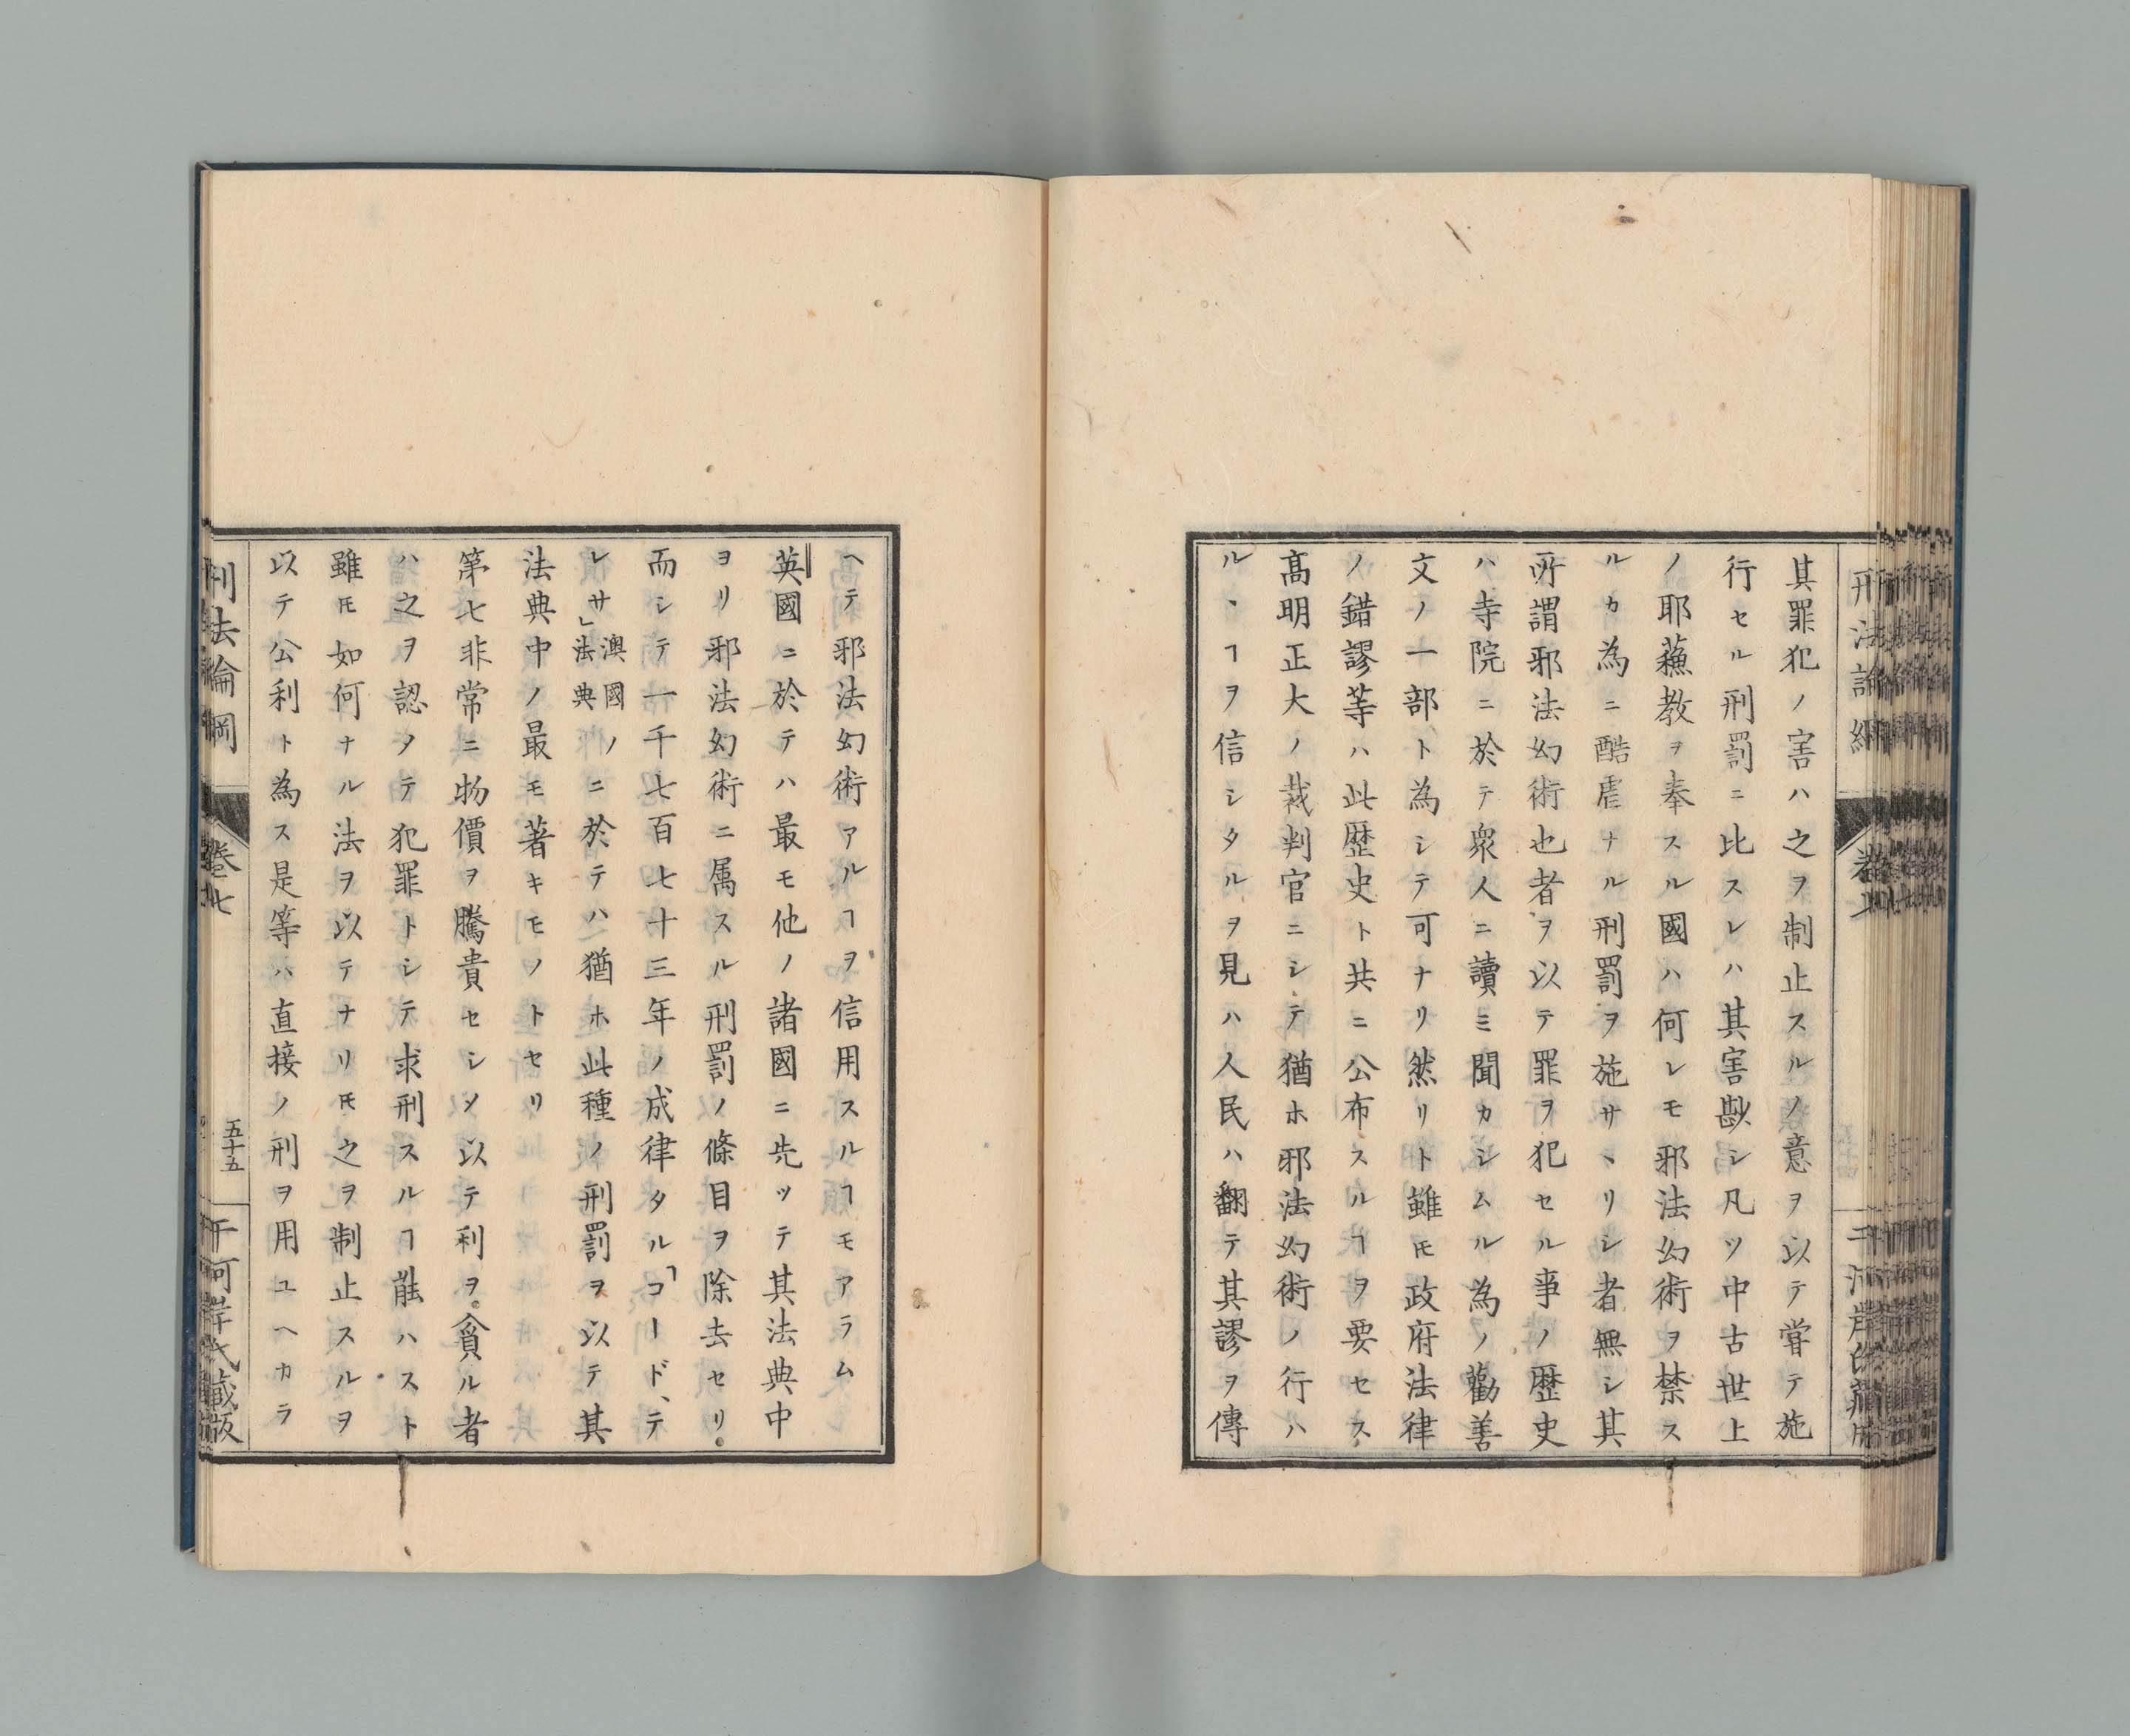 其罪犯ノ害ハ之ヲ制止スルノ意ヲ以テ甞テ施
行セル刑罰ニ比スレハ其害尠シ凡ソ中古世上
ノ耶蘓教ヲ奉スル國ハ何レモ邪法幻術ヲ禁ス
ルカ為ニ酷虐ナル刑罰ヲ施サヽリシ者無シ其
所謂邪法幻術也者ヲ以テ罪ヲ犯セル事ノ歴史
ハ寺院ニ於テ衆人ニ讀ミ聞カシムル為ノ勸善
文ノ一部ト為シテ可ナリ然リト雖モ政府法律
ノ錯謬等ハ此歴史ト共ニ公布スルヿヲ要セス
髙明正大ノ裁判官ニシテ猶ホ邪法幻術ノ行ハ
ルヽヿヲ信シタルヲ見ハ人民ハ翻テ其謬ヲ傳
ヘテ邪法幻術アルヿヲ信用スルヿモアラム
英國ニ於テハ最モ他ノ諸國ニ先ッテ其法典中
ヨリ邪法幻術ニ属スル刑罰ノ條目ヲ除去セリ
而シテ一千七百七十三年ノ成律タル「コードテ
レサ」澳國ノ法典ニ於テハ猶ホ此種ノ刑罰ヲ以テ其
法典中ノ最モ著キモノトセリ
第七非常ニ物價ヲ騰貴セシメ以テ利ヲ貪ル者
ハ之ヲ認メテ犯罪トシテ求刑スルヿ能ハスト
雖モ如何ナル法ヲ以テナリモ之ヲ制止スルヲ
以テ公利ト為ス是等ハ直接ノ刑ヲ用ユヘカラ
刑法論綱
卷七
五十五
干河岸氏藏版